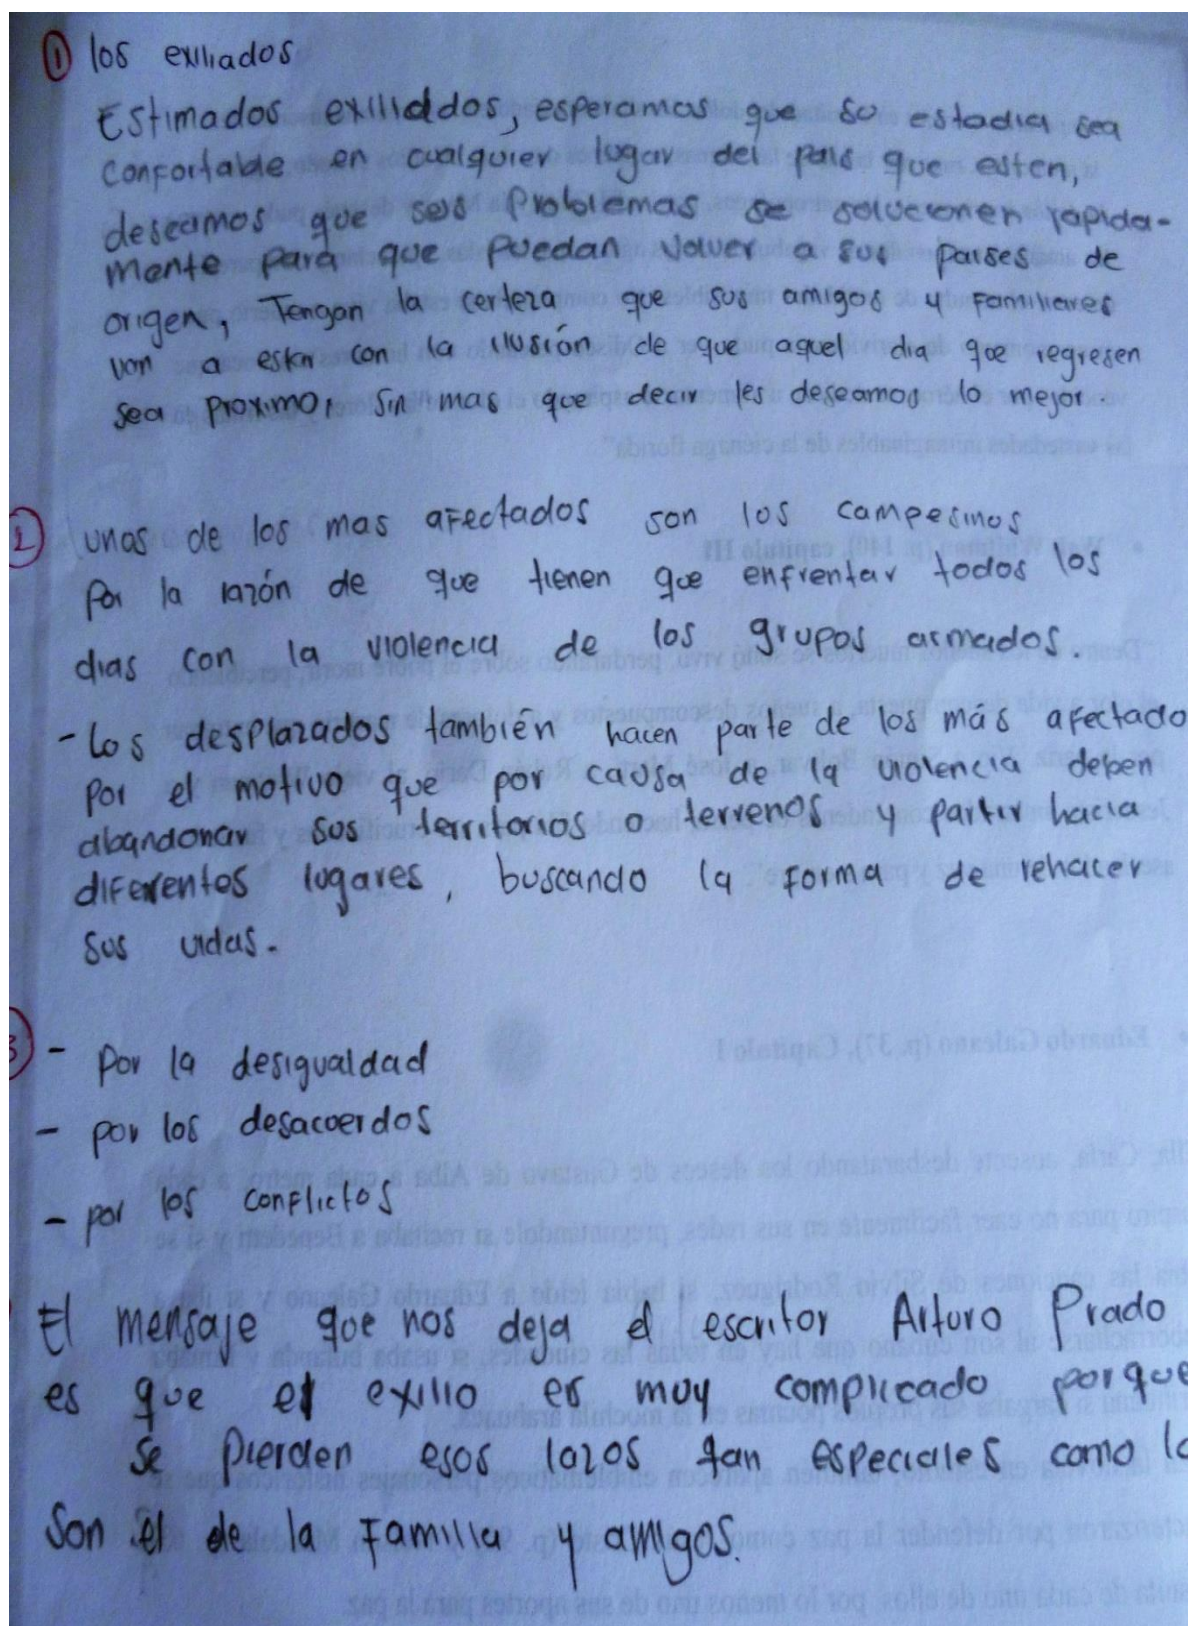 ① los exiliados
Estimados exiliados, esperamos que su estadia sea
confortable en cualquier lugar del pais que esten,
deseamos que sus problemas se solucionen rapida-
mente para que puedan volver a sus paises de
origen, Tengan la certeza que sus amigos y familiares
van a estar con la ilusión de que aquel dia que regresen
sea proximo, sin mas que decir les deseamos lo mejor.
2) unos de los mas afectados son los campesinos
por la razón de que tienen que enfrentar todos los
dias con la violencia de los grupos armados.
- Los desplazados también hacen parte de los más afectado
por el motivo que por causa de la violencia deben
abandonar sus territorios o terrenos y partir hacia
diferentes lugares, buscando la forma de rehacer
sus vidas.
3) - Por la desigualdad
- por los desacuerdos
- por los conflictos
El mensaje que nos deja el escritor Arturo Prado
es que el exilio es muy complicado porque
se pierden esos lazos tan especiales como lo
son el de la familia y amigos.